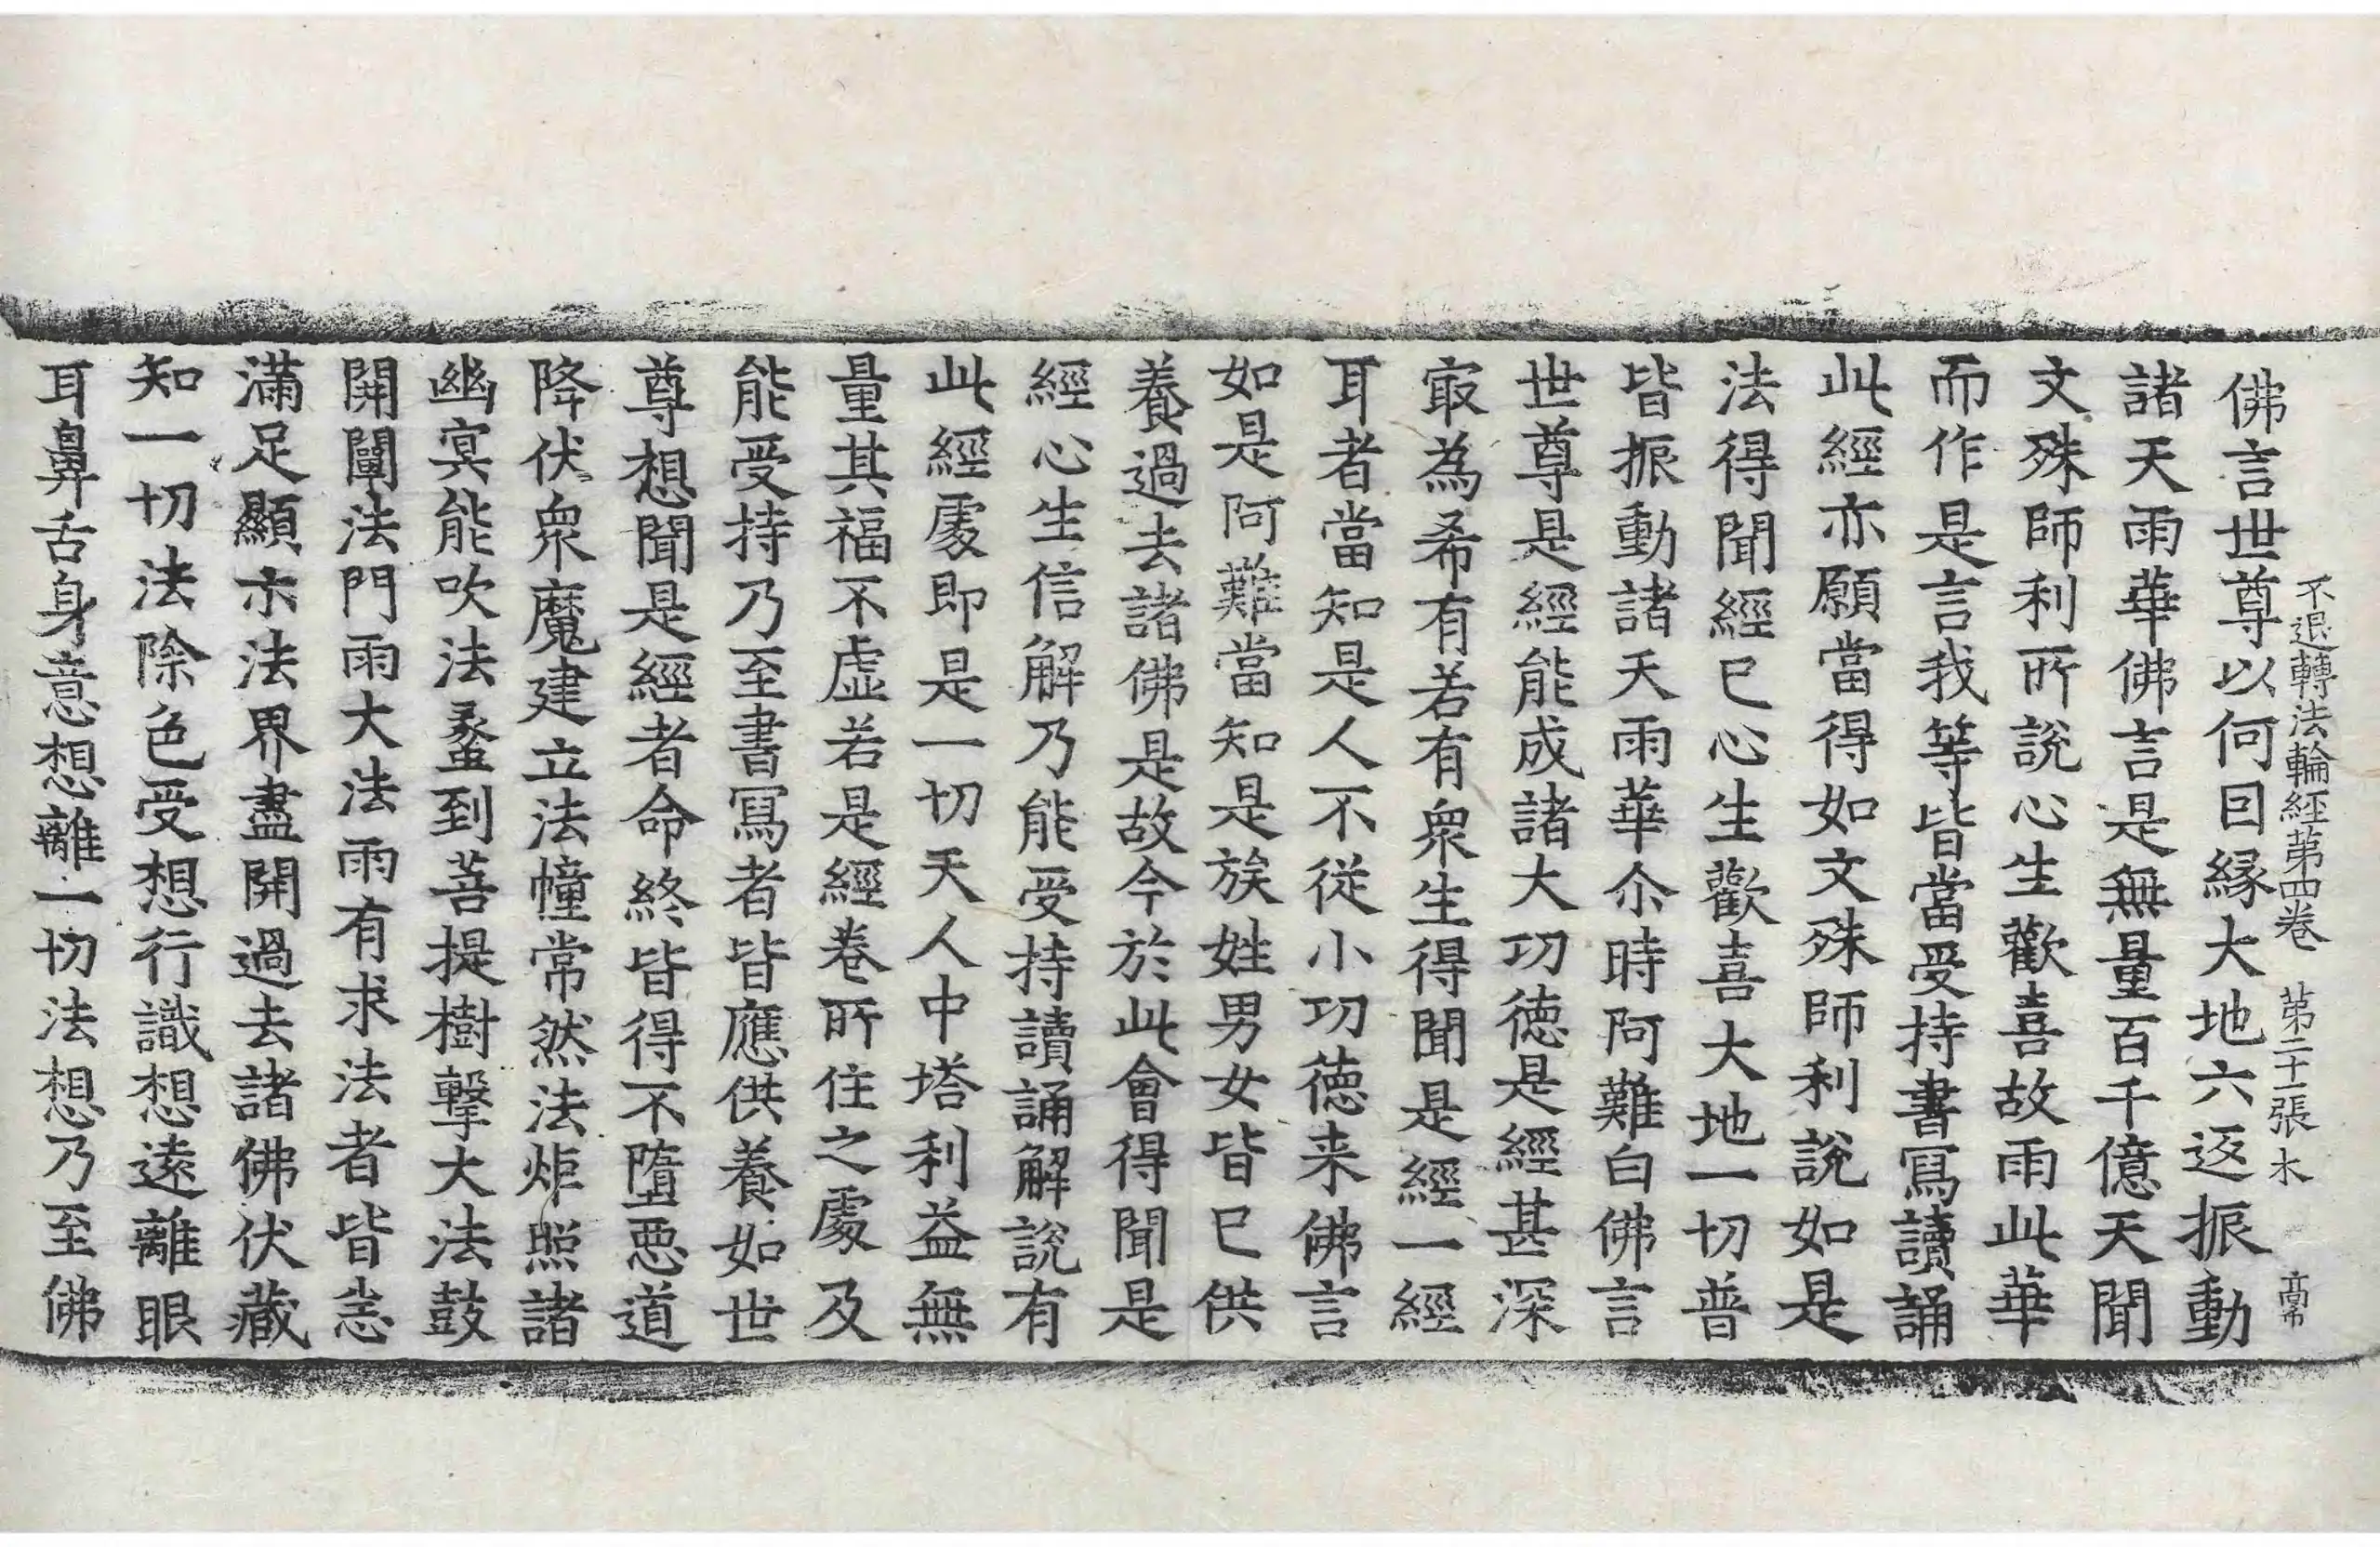 不退轉法輪經第四卷 第二十一張 木 髙常
佛言世尊以何囙縁大地六返振動
諸天雨華佛言是無量百千億天聞
文殊師利所說心生歡喜故雨此華
而作是言我等皆當受持書寫讀誦
此經亦願當得如文殊師利說如是
法得聞經已心生歡喜大地一切普
皆振動諸天雨華尒時阿難白佛言
世尊是經能成諸大功德是經甚深
㝡為希有若有衆生得聞是經一經
耳者當知是人不從小功德来佛言
如是阿難當知是族姓男女皆已供
養過去諸佛是故今於此會得聞是
經心生信解乃能受持讀誦解說有
此經處即是一切天人中塔利益無
量其福不虛若是經卷所住之處及
能受持乃至書寫者皆應供養如世
尊想聞是經者命終皆得不墮惡道
降伏衆魔建立法幢常然法炬照諸
幽冥能吹法蠡到菩提樹擊大法鼓
開闡法門雨大法雨有求法者皆悉
滿足顯示法界盡開過去諸佛伏藏
知一切法除色受想行識想遠離眼
耳鼻舌身意想離一切法想乃至佛